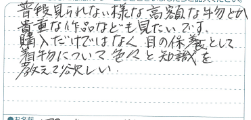 普段見られない様な高額な生物とか
貴重な作品なども見たいです。
購入だけではなく目の保養として
着物について色々と知識を
教えて欲しい